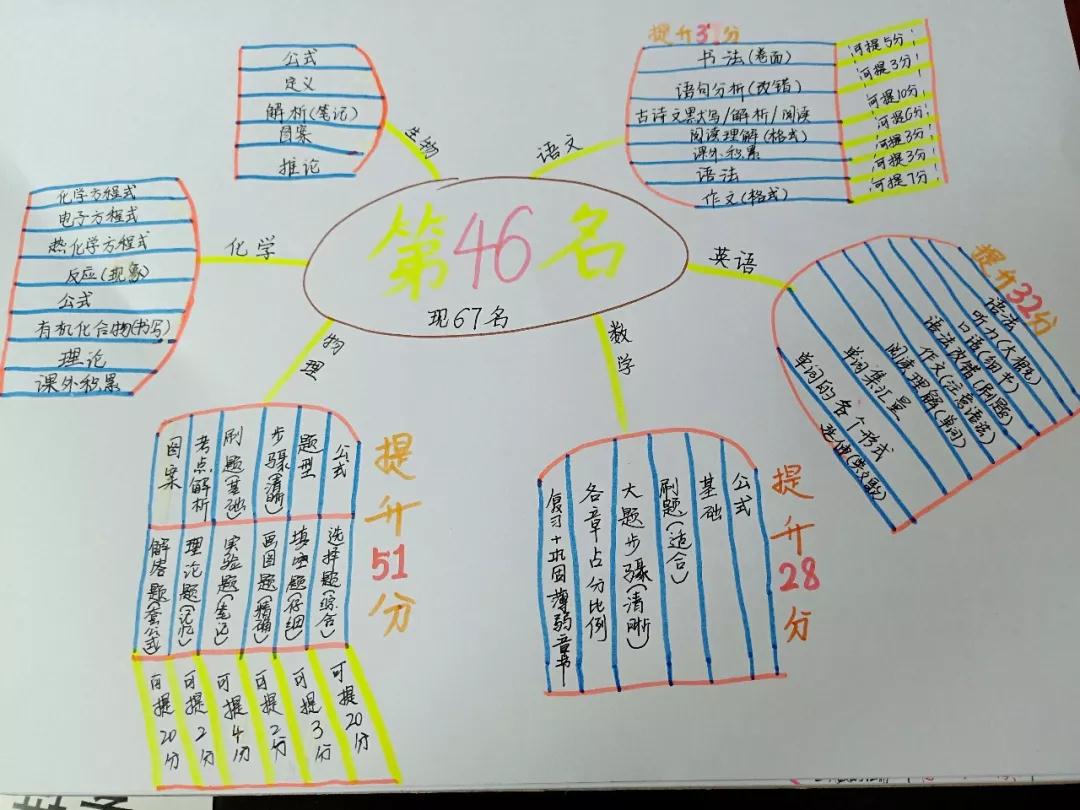 第46名
现67名
生物
公式
定义
解析(笔记)
图案
推论
语文
提升37分
书法(卷面)
语句分析(改错)
古诗文默写/解析/阅读
阅读理解(格式)
课外积累
语法
作文(格式)
可提5分
可提3分
可提10分
可提6分
可提3分
可提3分
可提7分
化学
化学方程式
电子方程式
热化学方程式
反应(现象)
公式
有机化合物(书写)
理论
课外积累
英语
提升32分
语法
听力(大概)
口语(细节)
语法改错(刷题)
作文(注意语法)
阅读理解(单词)
单词集汇量
单词的各个形式
物理
提升51分
公式
题型
步骤(清晰)
刷题(基础)
考点解析
图案
选择题(综合)
填空题(仔细)
画图题(精确)
实验题(笔记)
理论题(记忆)
解答题(套公式)
可提20分
可提3分
可提2分
可提4分
可提2分
可提20分
数学
提升28分
公式
基础
刷题(适合)
大题步骤(清晰)
各章占分比例
复习+巩固薄弱章节